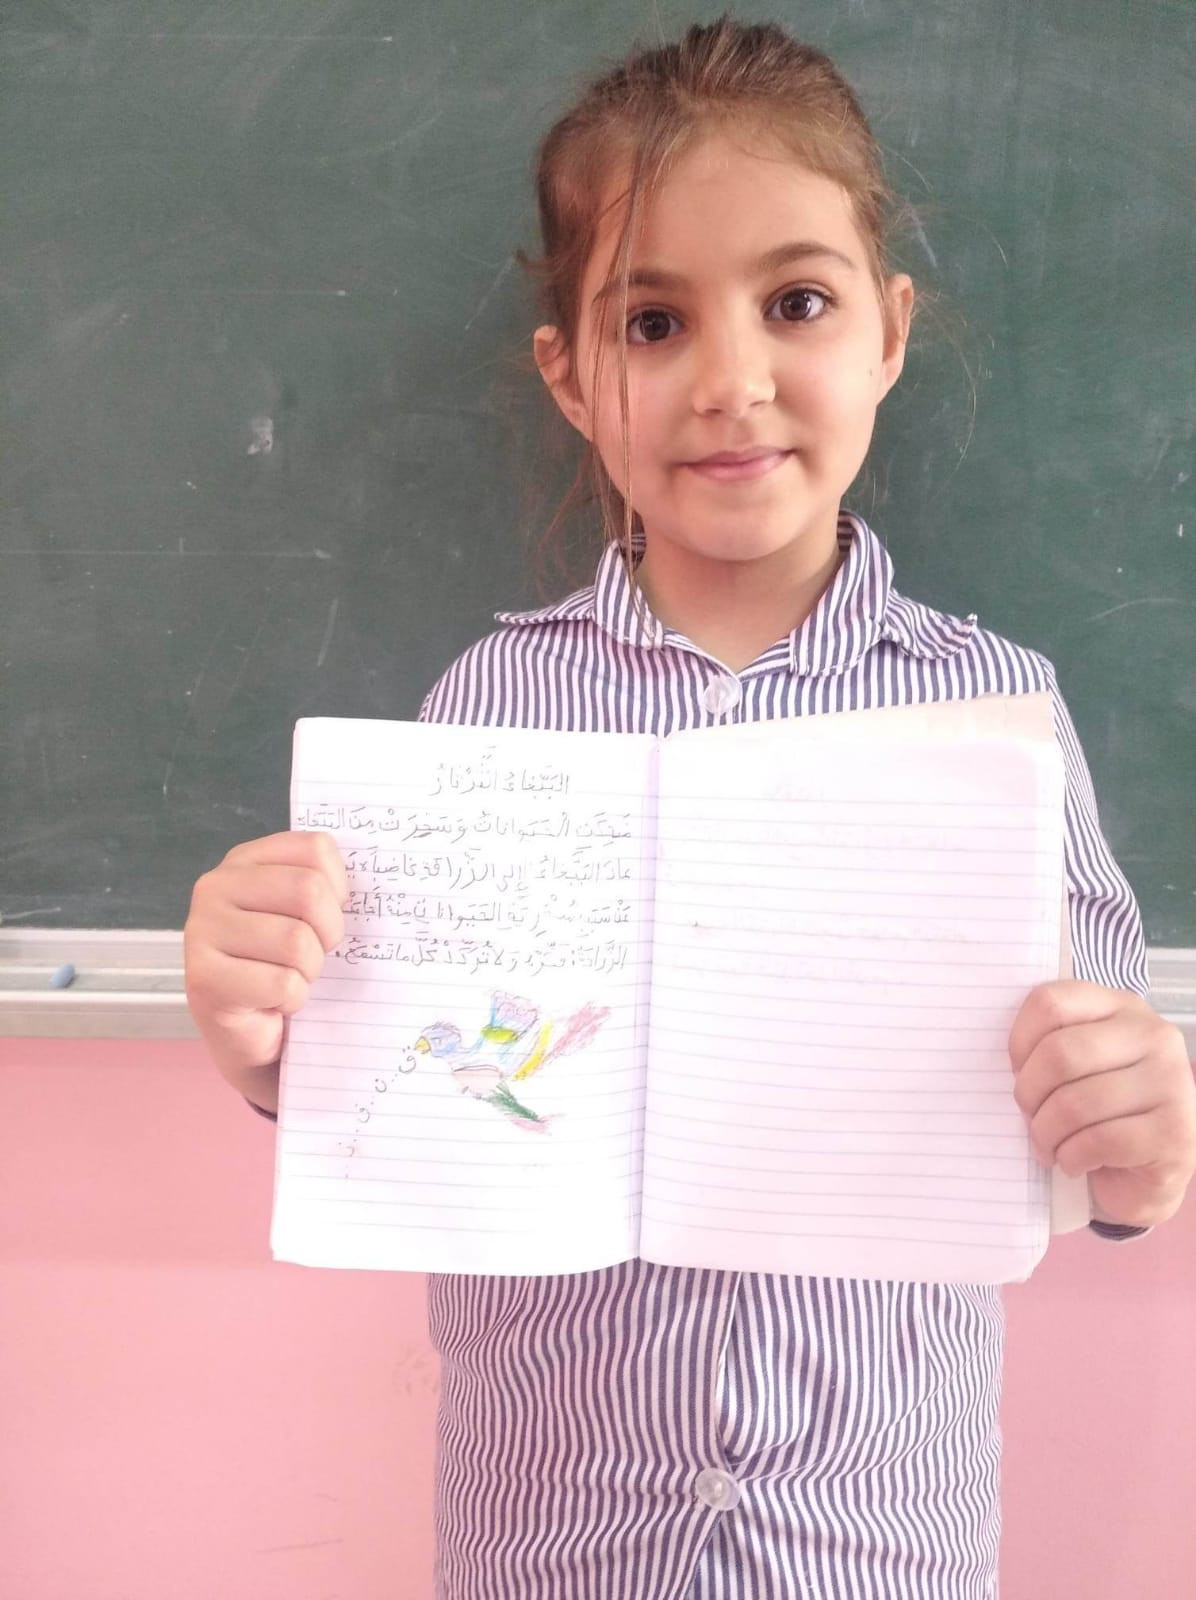 البَبَّغاءُ الثَّرْثارُ
ضَحِكَتِ الْحَيَواناتُ وَسَخِرَتْ مِنَ البَبَّغاءِ
عادَ البَبَّغاءُ إِلى الزَّرافَةِ غاضِباً
عَنْ سَبَبِ سُخْرِيَّةِ الحَيَواناتِ مِنْهُ أَجابَتْ
الزَّرافَةُ: وَلا تُرَدِّدْ كُلَّ ما تَسْمَعُ.
ق.. ن.. ق.. ن..